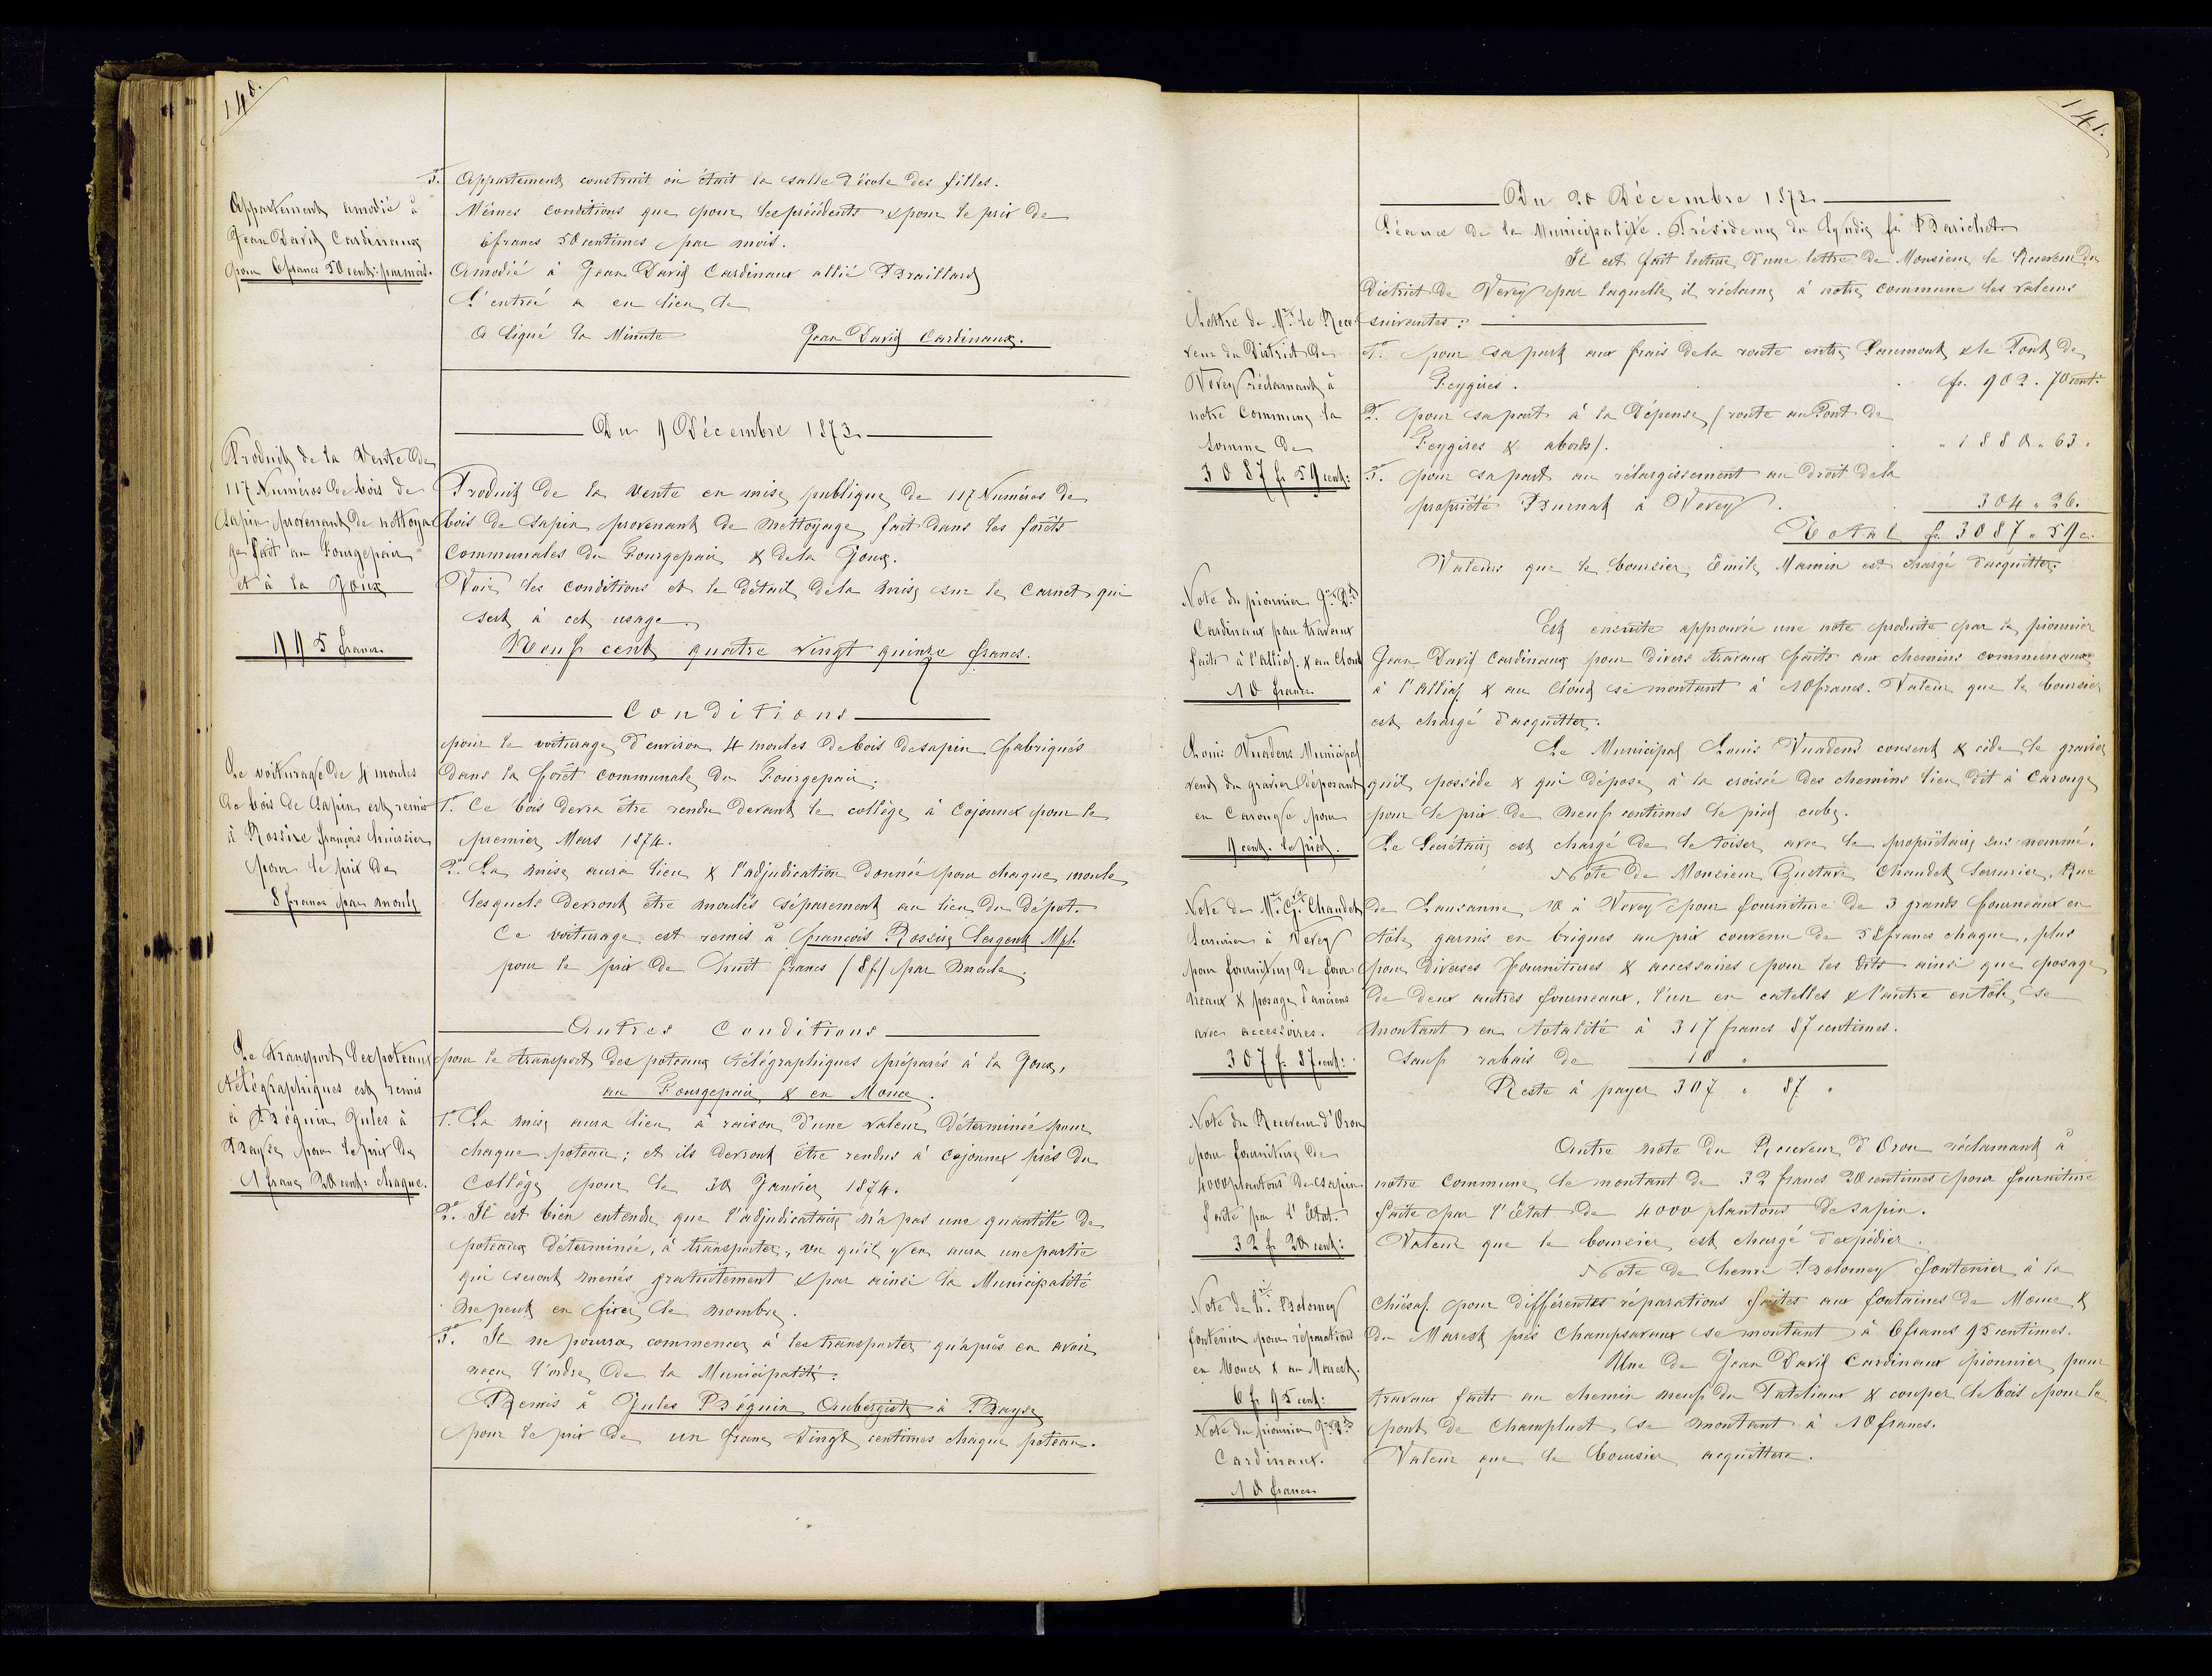 140.
Appartement amodié à
Jean David Cardinaux
pour 6 francs 50 cent: par mois.
3.° Appartement construit où était la salle d'école des filles.
Mêmes conditions que pour les précédents & pour le prix de
6 francs 50 centimes par mois.
Amodié à Jean David Cardinaux allié Braillard
L'entrée a eu lieu le
A signé la Minute Jean David Cardinaux.
Du 9 Décembre 1873.
Produit de la Vente de
117 Numéros de bois de
sapin provenant de nettoya-
ge fait au Fourgepair
et à la Joux
995 francs
Produit de la vente en mise publique de 117 Numéros de
bois de sapin provenant de nettoyage fait dans les forêts
Communales du Fourgepair & de la Joux.
Voir les conditions et le détail de la mise sur le Carnet qui
sert à cet usage.
Neuf cent quatre vingt quinze francs.
Conditions
Le voiturage de 4 moules
de bois de sapin est remis
à Rossire François huissier
pour le prix de
8 francs par moule
pour le voiturage d'environ 4 moules de bois de sapin fabriqués
dans la forêt communale du Fourgepair.
1.° Ce bois devra être rendu devant le collège à Cojonnex pour le
premier Mars 1874.
2.° La mise aura lieu & l'adjudication donnée pour chaque moule
lesquels devront être moulés séparement au lieu du dépôt.
Ce voiturage est remis à François Rossire Sergent Mpl.
pour le prix de huit francs (8 f.) par moule.
Autres Conditions
Le transport des poteaux
télégraphiques est remis
à Béguin Jules à
Brayse pour le prix de
1 franc 20 cent: chaque.
pour le transport des poteaux télégraphiques préparés à la Joux,
au Fourgepair & en Mouce.
1.° La mise aura lieu à raison d'une valeur déterminée pour
chaque poteau; et ils devront être rendus à Cojonnex près du
Collège pour le 30 Janvier 1874.
2.° Il est bien entendu que l'adjudicataire n'a pas une quantité de
poteaux déterminée, à transporter, vu qu'il y en aura une partie
qui seront menés gratuitement & par ainsi la Municipalité
ne peut en fixer le nombre.
3.° Il ne pourra commencer à les transporter qu'après en avoir
reçu l'ordre de la Municipalité.
Remis à Jules Béguin Aubergiste à Brayse
pour le prix de un franc vingt centimes chaque poteau.
141.
Du 20 Décembre 1873.
Séance de la Municipalité. Présidence du Syndic
Il est fait lecture d'une lettre de Monsieur le Receveur du
District de Vevey par laquelle il réclame à notre commune les valeurs
suivantes:
Lettre de Mr. le Rece-
veur du District de
Vevey réclamant à
notre Commune la
somme de
3087 fr. 59 cent:
1.° pour sa part aux frais de la route entre Saumont & le Pont de
Feygires. fr. 902. 70 cent:
2.° pour sa part à la dépense (route au Pont de
Feygires & abords). " 1880 " 63.
3.° pour sa part au rélargissement au droit de la
propriété Burnat à Vevey. 304 " 26.
Total fr. 3087 " 59 c.
Valeurs que le boursier Emile Mamin est chargé d'acquitter.
Note du pionnier Jn. Dd.
Cardinaux pour travaux
faits à l'Alliaz & au Cloud
10 francs
Est ensuite approuvée une note produite par le pionnier
Jean David Cardinaux pour divers travaux faits aux chemins communaux
à l'Alliaz & au Cloud se montant à 10 francs. Valeur que le boursier
est chargé d'acquitter.
Louis Vuadens Municipal
vend du gravier déposant
en Carouge pour
9 cent. le pied.
Le Municipal Louis Vuadens consent & cède le gravier
qu'il possède & qui dépose à la croisée des chemins lieu dit à Carouge
pour le prix de neuf centimes le pied cube.
Le Secrétaire est chargé de le toiser avec le propriétaire sus-nommé.
Note de Mr. Gve. Chaudet
Serrurier à Vevey
pour fourniture de four-
neaux & posage d'anciens
avec accessoires.
307 f. 87 cent:
Note de Monsieur Gustave Chaudet Serrurier, Rue
de Lausanne 10 à Vevey pour fourniture de 3 grands fourneaux en
tôle garnis en briques au prix convenu de 58 francs chaque, plus
pour diverses fournitures & accessoires pour les dits ainsi que posage
de deux autres fourneaux, l'un en catelles & l'autre en tôle, se
montant en totalité à 317 francs 87 centimes.
Sauf rabais de 10 "
Reste à payer 307 " 87 "
Note du Receveur d'Oron
pour fourniture de
4000 plantons de sapin
faite par l'Etat.
32 f. 20 cent:
Autre note du Receveur d'Oron réclamant à
notre Commune le montant de 32 francs 20 centimes pour fourniture
faite par l'Etat de 4000 plantons de sapin.
Valeur que le boursier est chargé d'expédier.
Note de Hri. Bolomey
fontenier pour réparations
en Mouce & au Marest.
6 fr 95 cent:
Note de Henri Bolomey fontenier à la
Chiésaz pour différentes réparations faites aux fontaines de Mouce &
du Marest près Champsavaux se montant à 6 francs 95 centimes.
Note du pionnier Jn. Dd.
Cardinaux.
10 francs
Une de Jean David Cardinaux pionnier, pour
travaux faits au chemin neuf du Tateliaux & couper le bois pour le
pont de Champluet, se montant à 10 francs.
Valeur que le boursier acquittera.